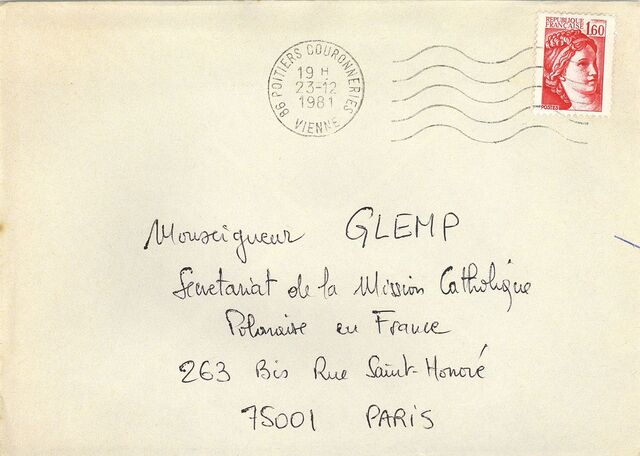 REPUBLIQUE
FRANÇAISE 1,60
POSTES
86 POITIERS COURONNERIES
19 H
23-12
1981
VIENNE
Monseigneur GLEMP
Secretariat de la Mission Catholique
Polonaise en France
263 Bis Rue Saint-Honoré
75001 PARIS